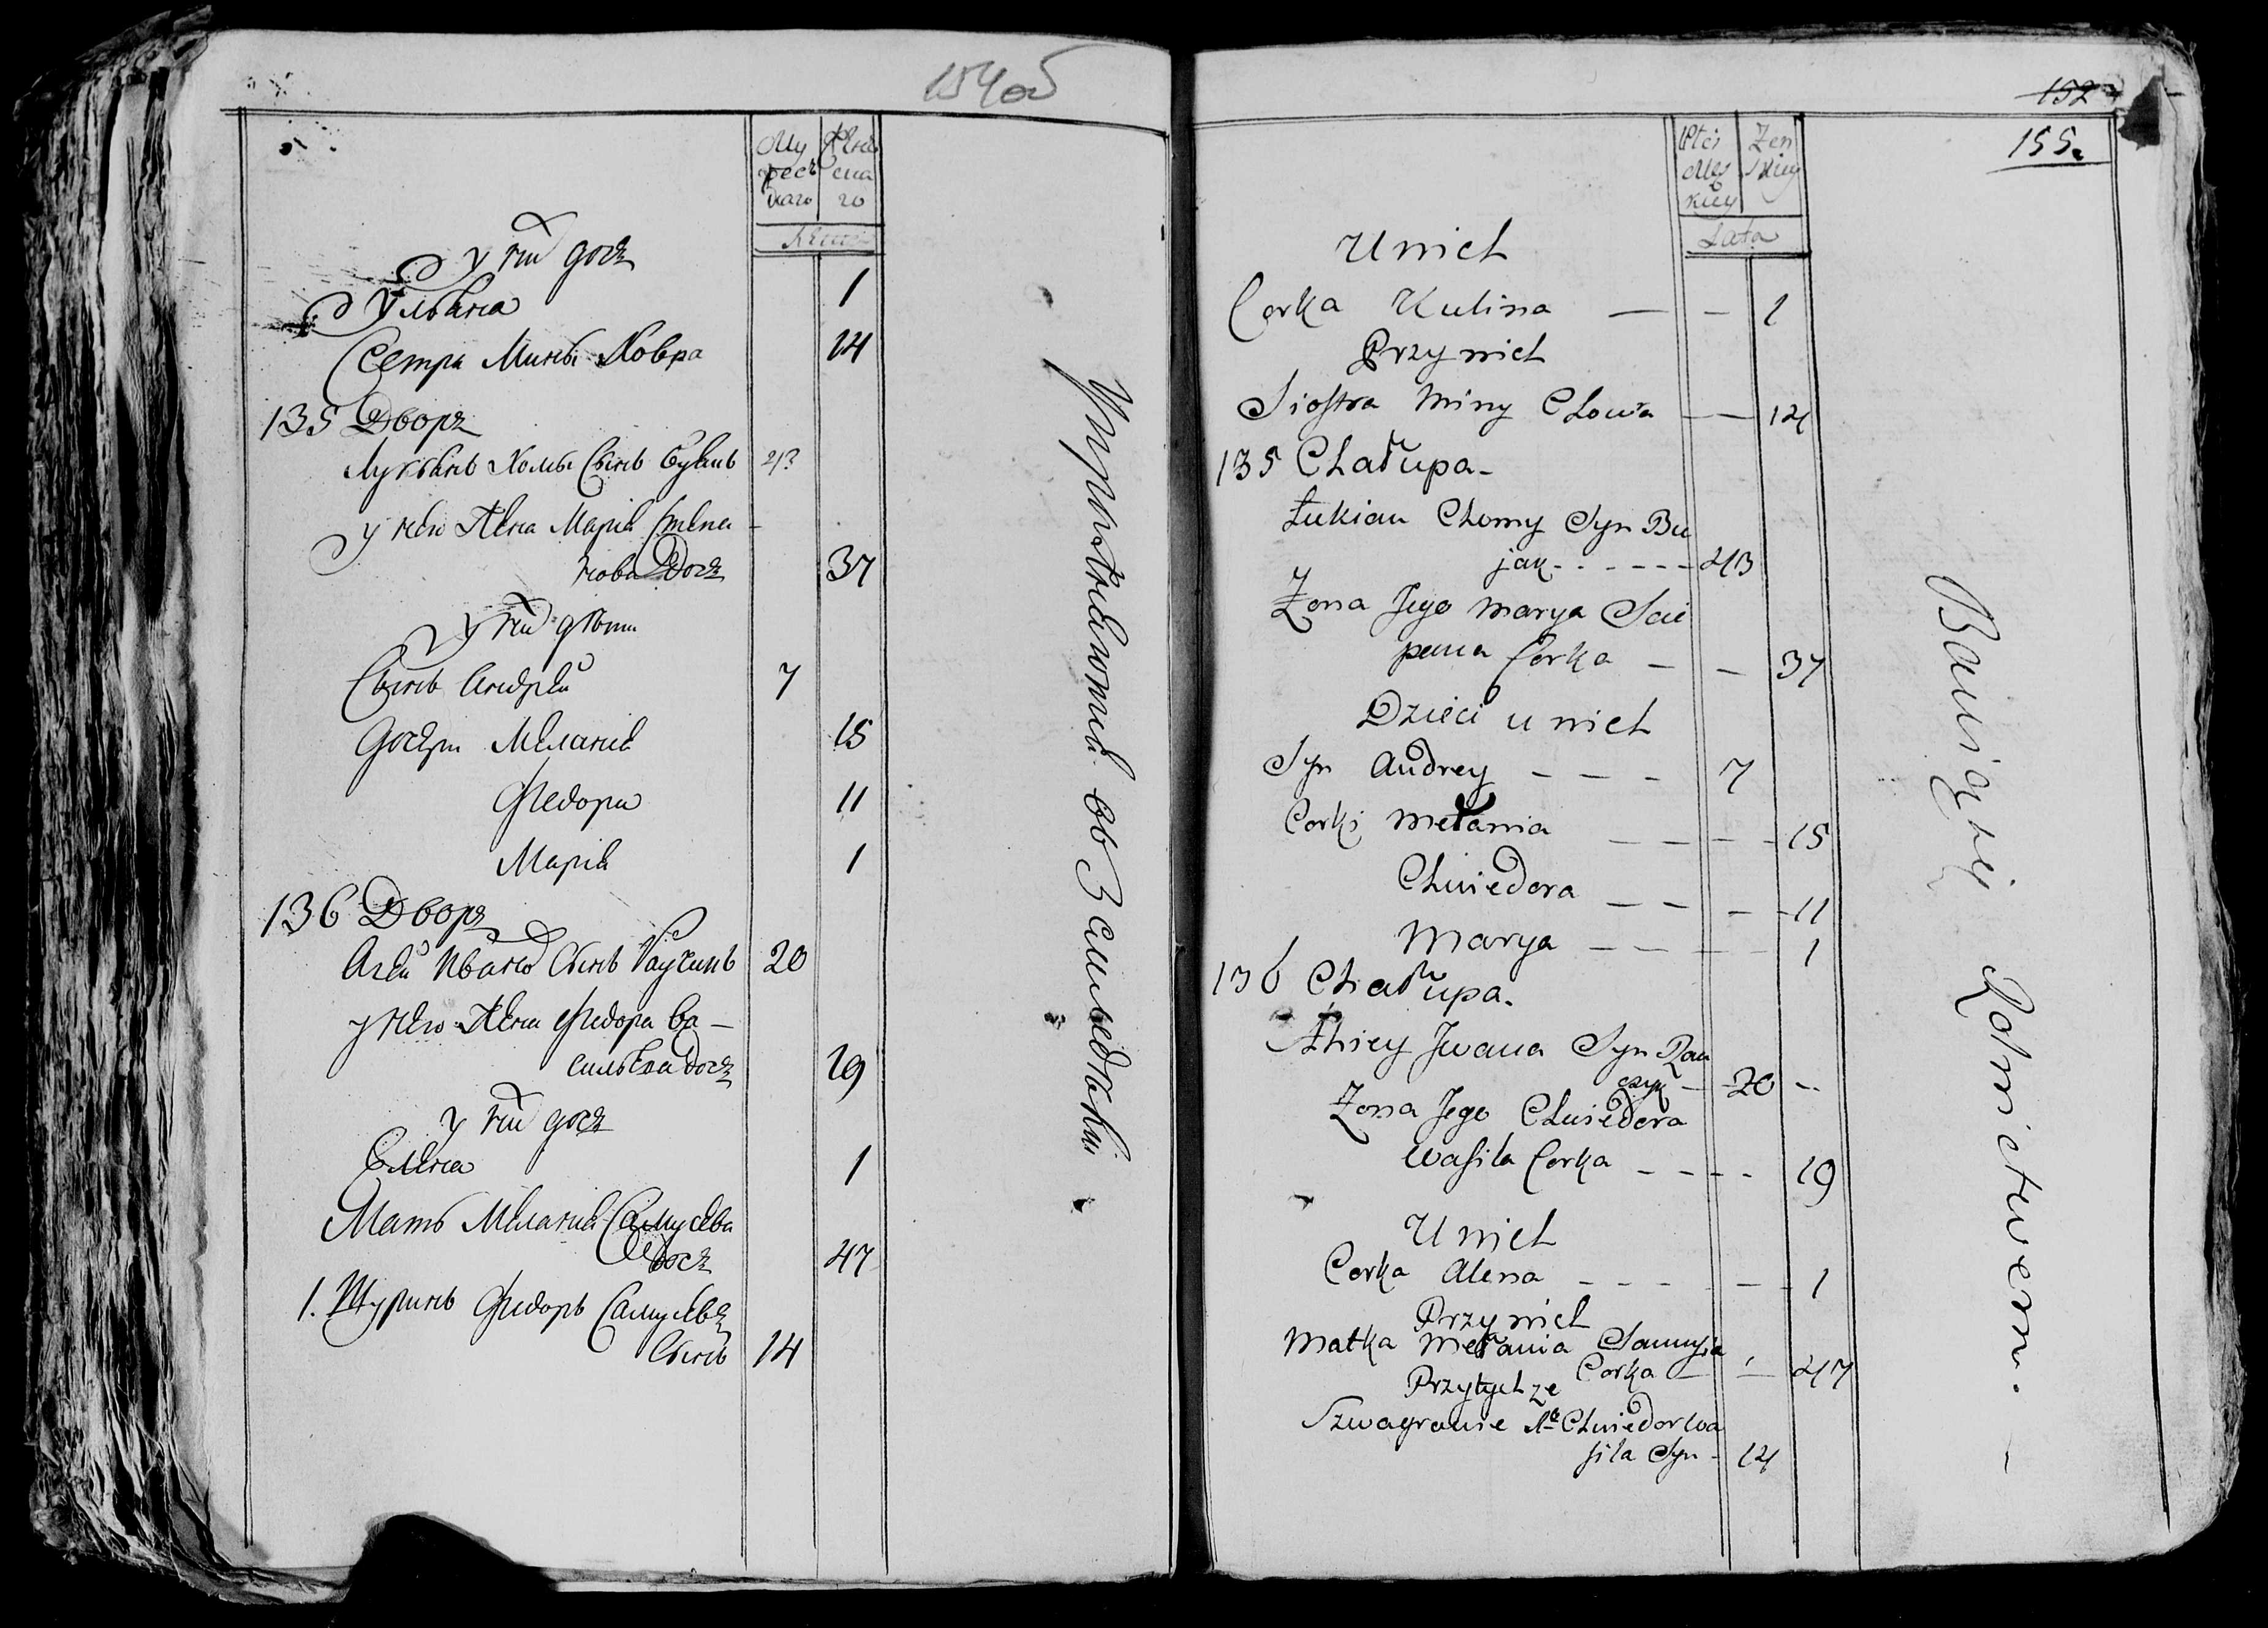 154об
Му
жеск
каго
Женс
ска
го
Лета
у них дочъ
Ульяна 1
Сестра Мины Ховра 14
135 Дворъ
Лукьянъ Хомы Сынъ Буякъ 43
у него Жена Марія Степа
нова Дочъ 37
у них дети
Сынъ Андрей 7
Дочери Меланія 15
Федора 11
Марія 1
136 Дворъ
Агей Ивана Сынъ Раучикъ 20
у него Жена Федора Ва-
сильева дочъ 19
у них дочъ
Елена 1
Мать Меланія Самусева
дочъ 47
1. Шуринъ Федоръ Самусевъ
Сынъ 14
Упражняются въ Земледелии
152
155.
Płci
Męs
kiey
Zen
skiey
Lata
U nich
Corka Kulina — — 1
Przy nich
Siostra Miny Chowra — — 14
135 Chałupa-
Łukian Chomy Syn Bu
jak - - - - - - 43
Zona Jego Marya Scie
pana Corka — — 37
Dzieci u nich
Syn Andrey — — — 7
Corki Mełania — — — - 15
Chwiedora — — — - 11
Marya — — — — 1
136 Chałupa.
Ahiey Jwana Syn Rau
czyk — - 20 --
Zona Jego Chwiedora
Wasila Corka - - - - 19
U nich
Corka Alena - - - - — - 1
Przy nich
Matka Mełania Samusia
Corka — — 47
Przytych ze
Szwagrowie 1o Chwiedor Wa
sila Syn - 14
Bawią się Rolnictwem. —